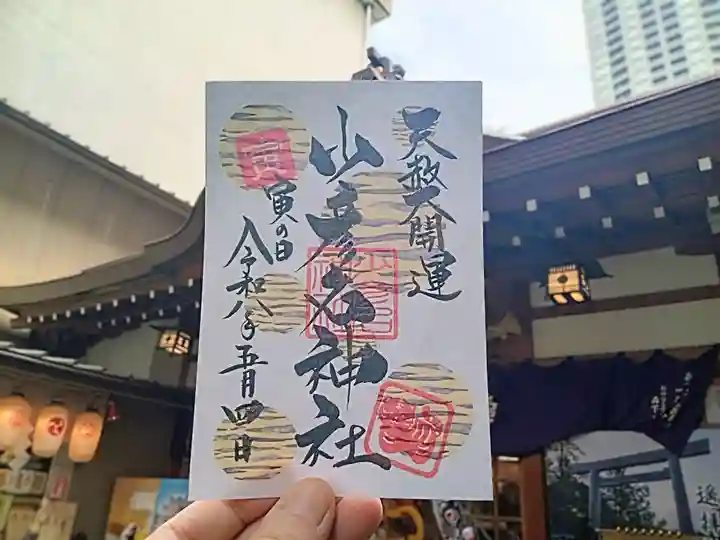 天赦大開運
少彦名神社
寅
寅の日
令和八年五月四日